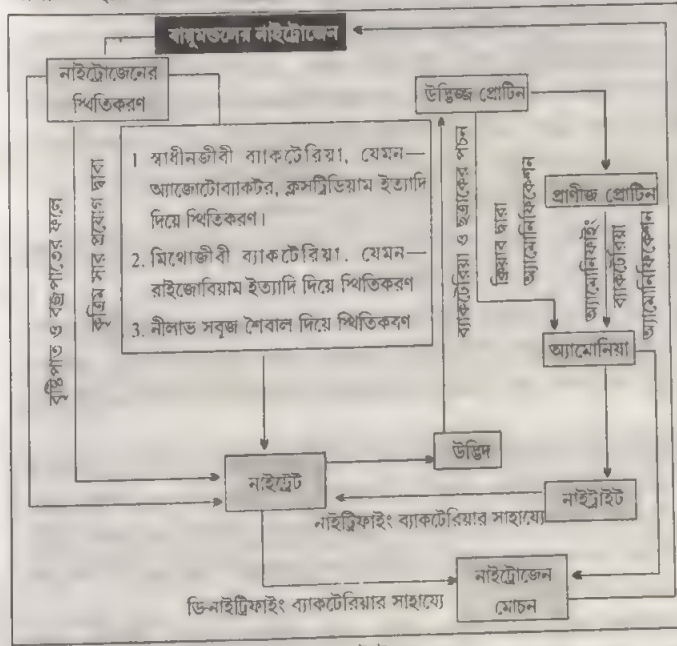 বায়ুমণ্ডলের নাইট্রোজেন
নাইট্রোজেনের
স্থিতিকরণ
বৃষ্টিপাত ও বজ্রপাতের ফলে
কৃত্রিম সার প্রয়োগ দ্বারা
1 স্বাধীনজীবী ব্যাকটেরিয়া, যেমন—
অ্যাজোটোব্যাকটর, ক্লসট্রিডিয়াম ইত্যাদি
দিয়ে স্থিতিকরণ।
2. মিথোজীবী ব্যাকটেরিয়া. যেমন—
রাইজোবিয়াম ইত্যাদি দিয়ে স্থিতিকরণ
3. নীলাভ সবুজ শৈবাল দিয়ে স্থিতিকরণ
উদ্ভিজ্জ প্রোটিন
প্রাণীজ প্রোটিন
ব্যাকটেরিয়া ও ছত্রাকের পচন
ক্রিয়ার দ্বারা
অ্যামোনিফিকেশন
অ্যামোনিফাইং
ব্যাকটেরিয়া
অ্যামোনিফিকেশন
অ্যামোনিয়া
উদ্ভিদ
নাইট্রেট
নাইট্রাইট
নাইট্রিফাইং ব্যাকটেরিয়ার সাহায্যে
নাইট্রোজেন
মোচন
ডি-নাইট্রিফাইং ব্যাকটেরিয়ার সাহায্যে